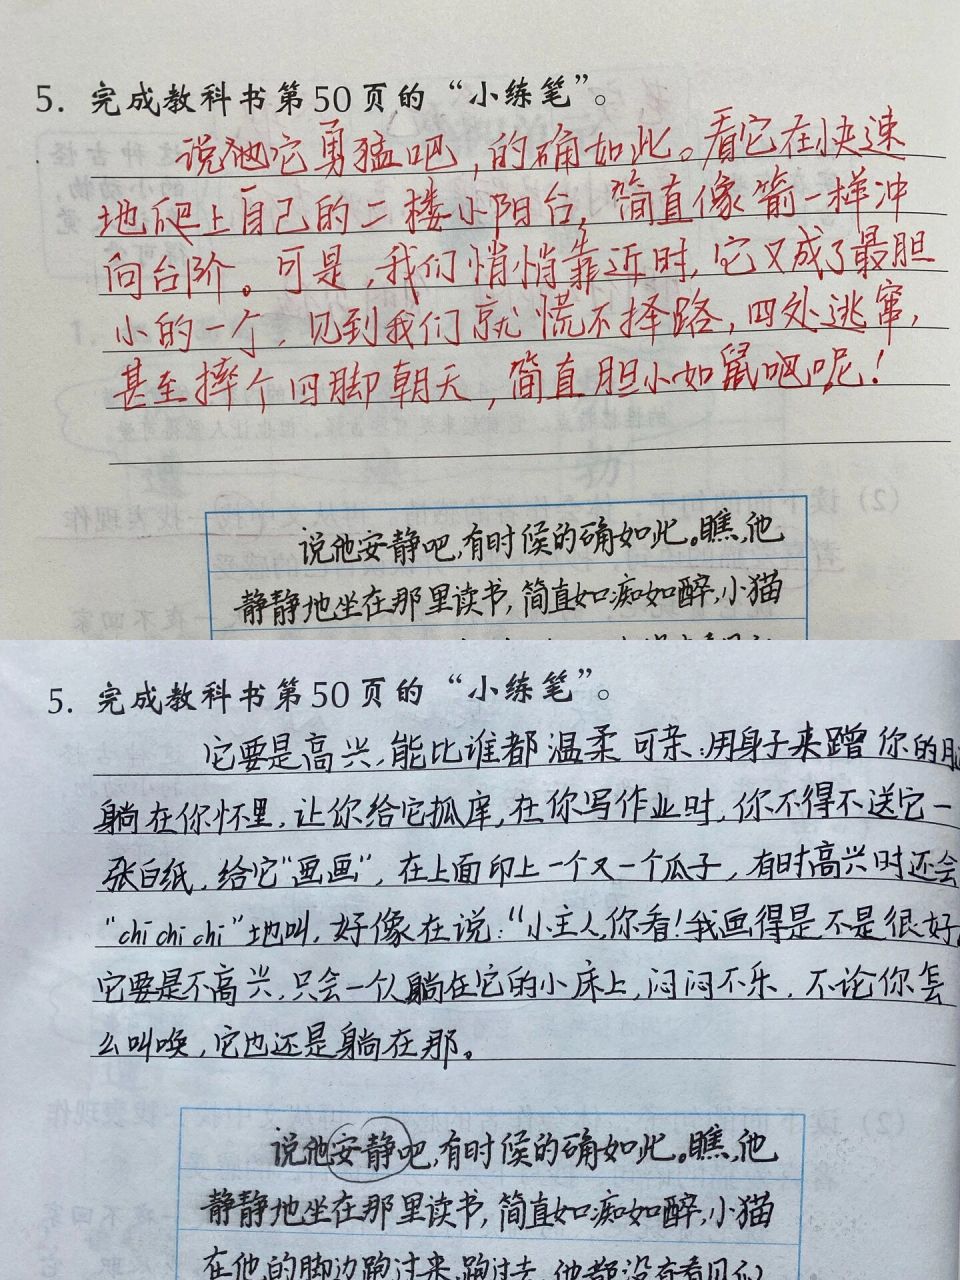 5. 完成教科书第50页的“小练笔”。
说它勇猛吧，的确如此。看它在快速
地爬上自己的二楼小阳台，简直像箭一样冲
向台阶。可是，我们悄悄靠近时，它又成了最胆
小的一个，见到我们就慌不择路，四处逃窜，
甚至摔个四脚朝天，简直胆小如鼠吧呢！
说他安静吧，有时候的确如此。瞧，他
静静地坐在那里读书，简直如痴如醉，小猫
5. 完成教科书第50页的“小练笔”。
它要是高兴，能比谁都温柔可亲：用身子来蹭你的
躺在你怀里，让你给它抓痒，在你写作业时，你不得不送它一
张白纸，给它“画画”，在上面印上一个又一个瓜子，有时高兴时还会
“chi chi chi”地叫，好像在说：“小主人，你看！我画得是不是很好。
它要是不高兴，只会一个人躺在它的小床上，闷闷不乐，不论你怎
么叫唤，它也还是躺在那。
说他安静吧，有时候的确如此。瞧，他
静静地坐在那里读书，简直如痴如醉，小猫
在他的脚边跑过来，跑过去，他都没有看见似